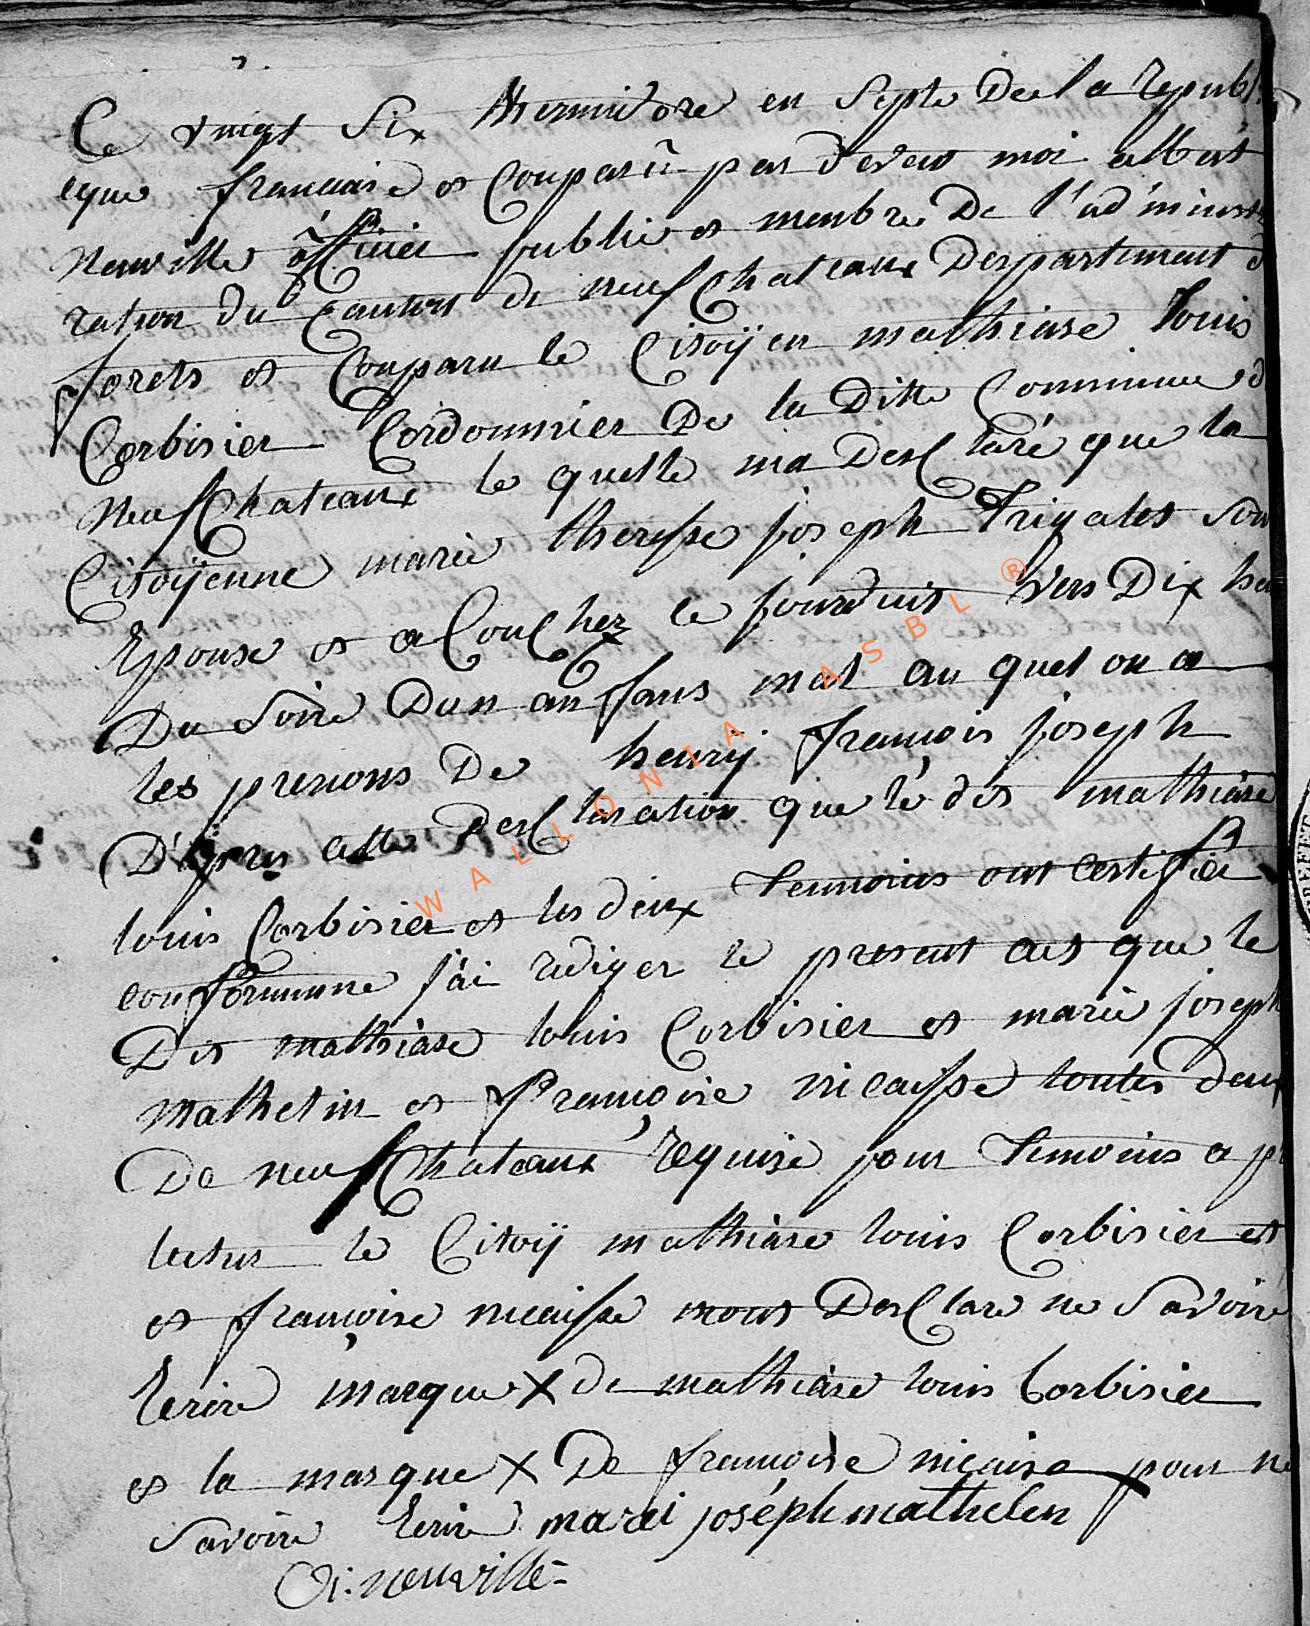 Ce vingt Six thermidore en Septe De la republi
eque francaise et Comparû par devens moi albert
Neuville officiée publie et membre De l'adminins
ration du Canton de neufChateaux Despartiment d
forets et Comparu le Citoÿen mathiase louis
Corbisier Cordonnier De la Ditte Commune d
NeufChateaux le quelle ma DesClaré que la
Citoÿenne marie theresse joseph trigalet son
Epouse et aCouChez le jourduit vers Dix heu
Du Soire Dun anfans mal au quel on a
les prenoms De henrÿ françois joseph
D'apres cette DesClaration que le dit mathiase
louis Corbisier et les deux temmoins ont Certifiée
conformme j'ai rediger le present act que le
Dit mathiase louis Corbisier et marie joseph
Mathelin et françoise nicaisse toutes deux
De neufChateaux requise pour temoins a pr
lectur le Citoÿ mathiase louis Corbisier et
et françoise nicaisse mont DesClare ne Savoire
Ecrire marque X de mathiase louis Corbisier
et la marque X De françoise nicaise pour ne
Savoire Ecrire marei joséph mathelen
A: neuville
WALLONIA ASBL ®